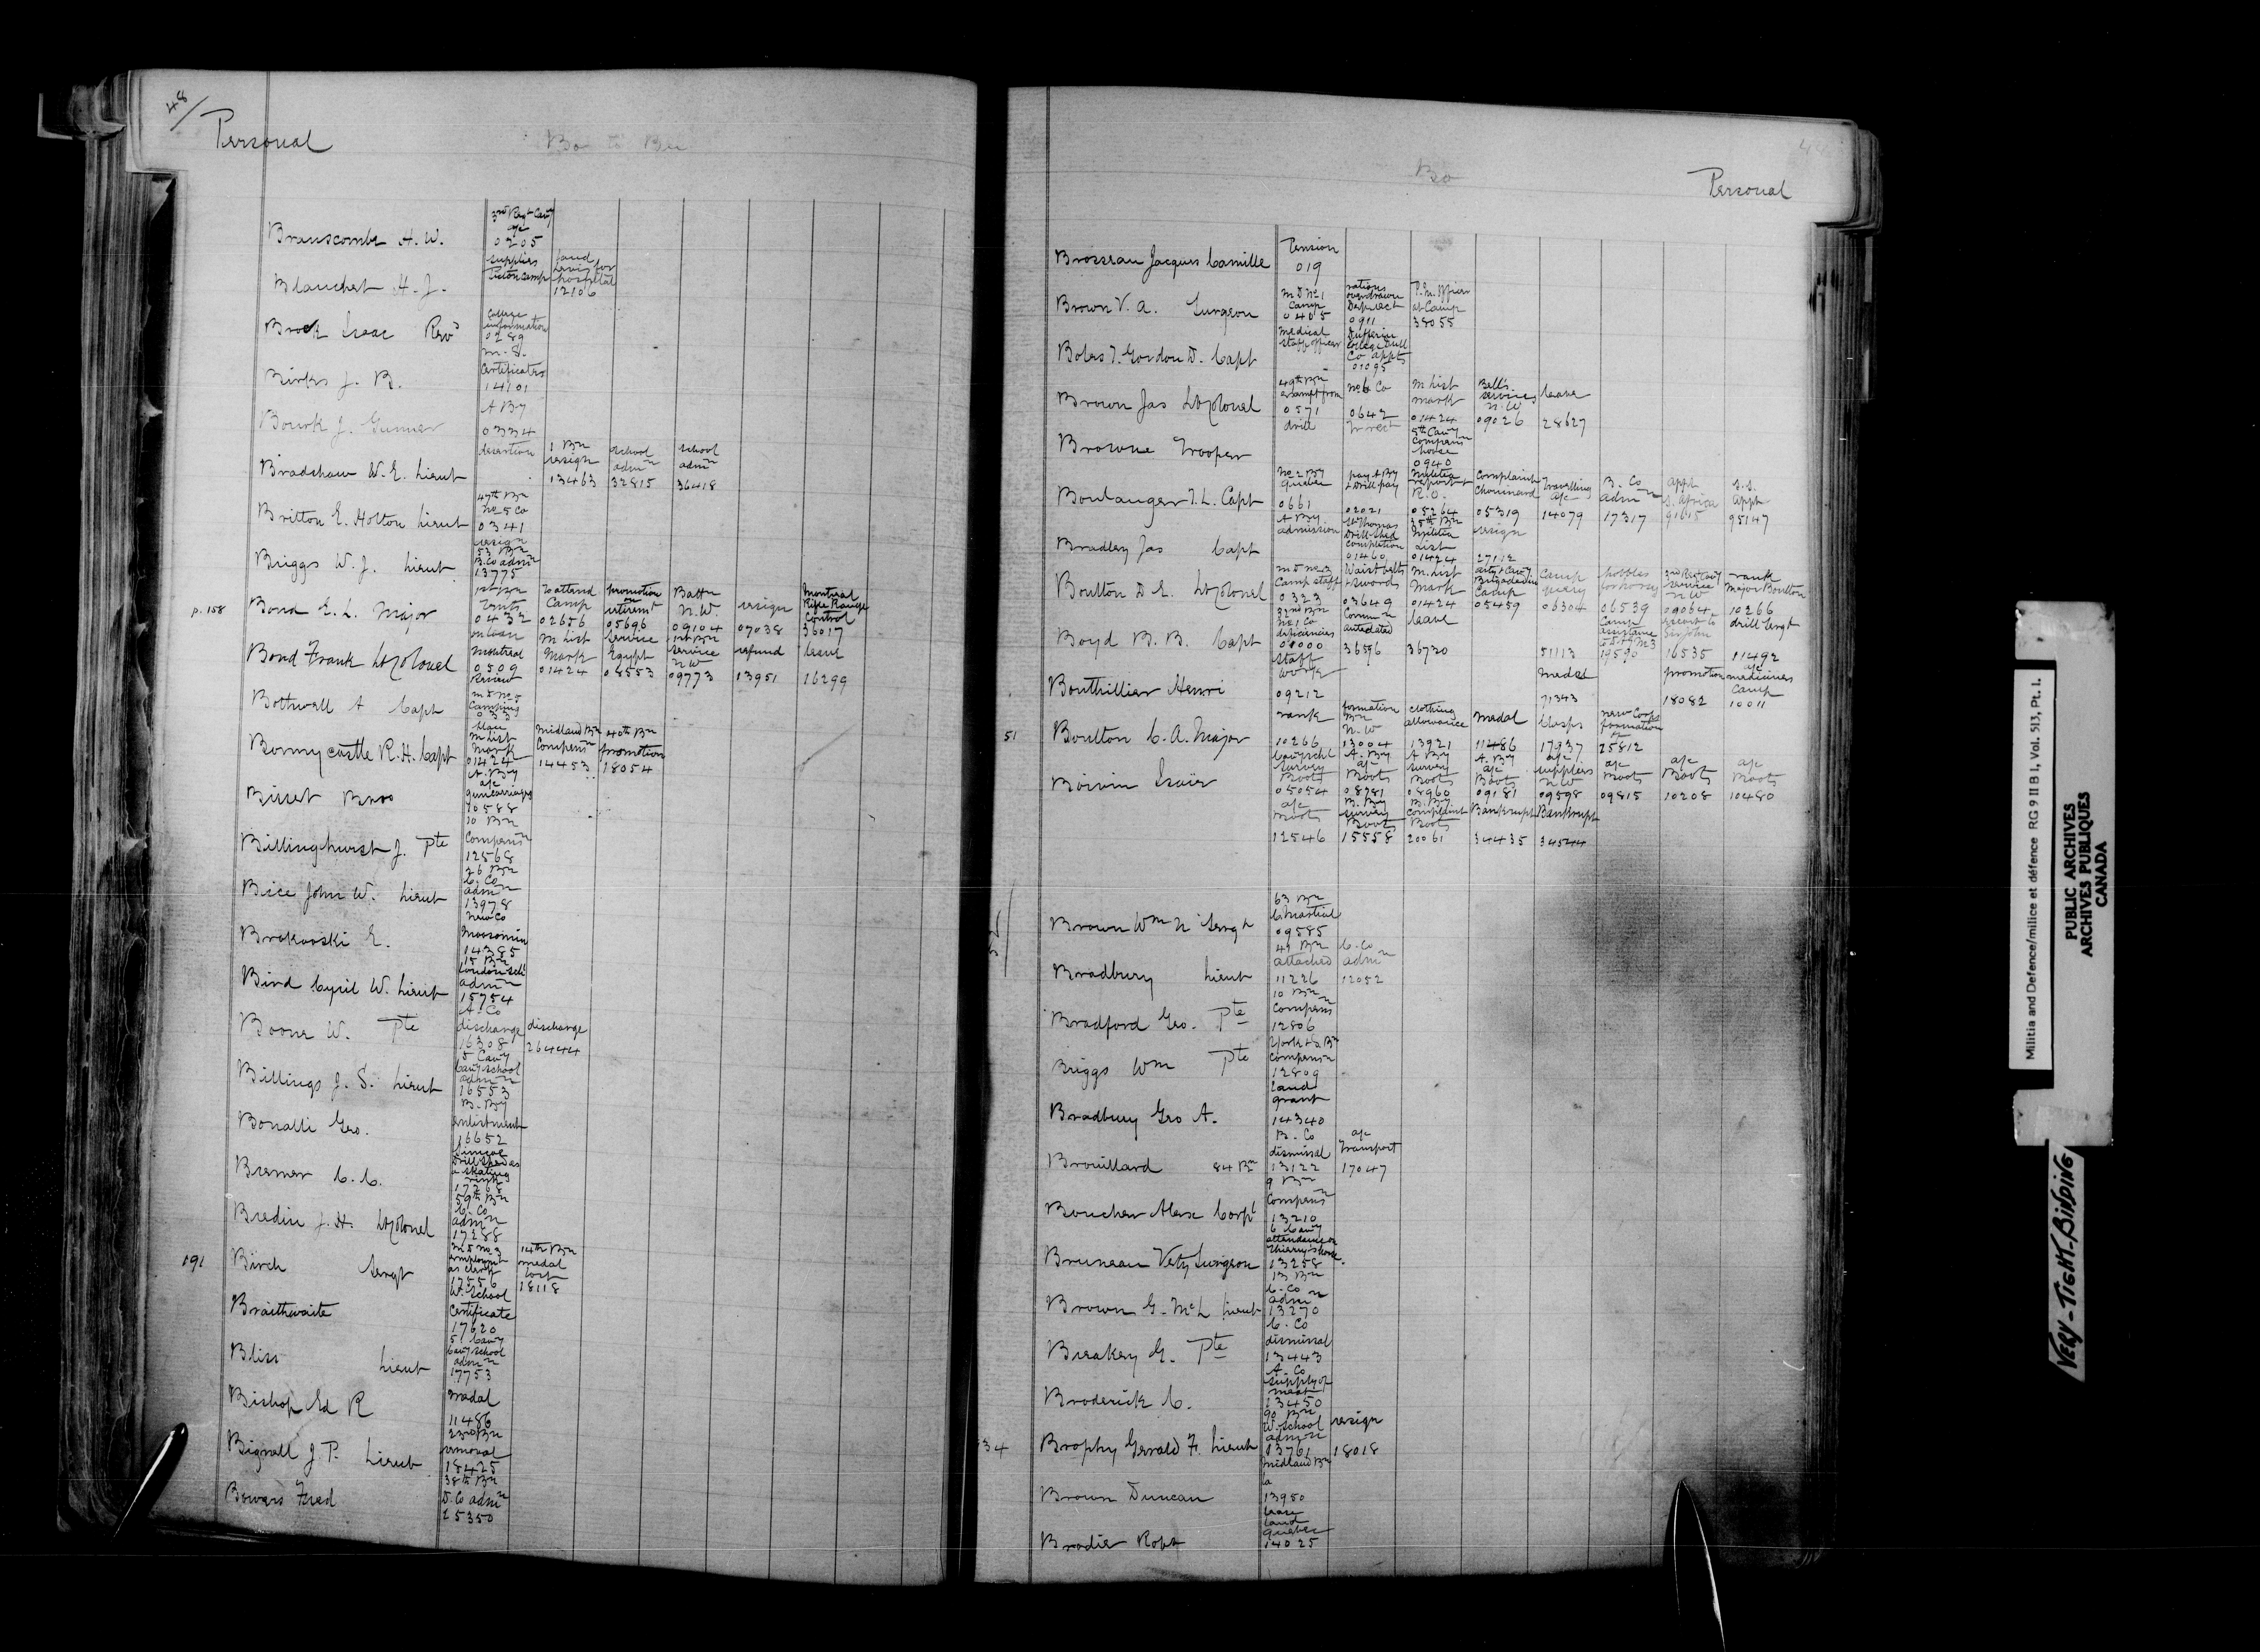 48/
Personal
Bo to Bre
Branscombe A. W.
3rd Regt Cavy
a/c
0205
Blanchert H. J.
supplies
Picton camp
land
Levis for
hospital
12106
Brock Isaac Revd
College
information
0289
Birks J. B.
m. S.
Certificates
14101
Bourk J. Gunner
A By
0334
desertion
Bradshaw W. E. Lieut
1 Bn
resign
13463
school
admn
32815
school
admn
36418
Britton E. Holton Lieut
47th Bn
No 5 Co
0341
resign
Briggs W. J. Lieut
53 Bn
B. Co admn
13775
p. 158
Bond E. L. Major
1st Bn
Tents
0432
To attend
Camp
02656
promotion
on
retiremt
05696
Battn
N. W.
09104
resign
07038
Montreal
Rifle Range
Control
36017
Bond Frank Lt Colonel
Montreal
0509
Review
M List
Mark
01424
Service
Egypt
08553
1st Bn
service
NW
09773
refund
13951
leave
16299
Bothwell A Capt
M D No 5
Camping
033
Bonny castle R. H. Capt
M List
Mark
01424
Midland Bn
Compensn
14453
40th Bn
promotion
18054
Bissett Bros
A. By
a/c
guncarriages
10588
Billinghurst J. Pte
10 Bn
Compensn
12568
Bice John W. Lieut
26 Bn
C. Co
admn
13978
Brokovski E.
New Co
Moosomin
14385
Bird Cyril W. Lieut
15 Bn
London Schl
admn
15754
Boone W. Pte
A. Co
discharge
16308
discharge
26444
Billings J. S. Lieut
5 Cavy
Cavy School
admn
16553
Bonalli Geo.
B. By
enlistment
16652
Bremer C. C.
Simcoe
Drill Shed as
a skating
rink
17268
Bredin J. H. Lt Colonel
59th Bn
C. Co
admn
17288
091
Birch Sergt
M D No 3
employmt
as clerk
17556
14th Bn
medal
lost
18118
Braithwaite
W. School
Certificate
17620
Bliss Lieut
5 Cavy
Cavy School
admn
17753
Bishop Ed R
medal
11486
Bignall J. P. Lieut
23rd Bn
removal
18425
Bowers Fred
38th Bn
D. Co admn
25350
Bo
Personal
Brosseau Jacques Camille
Pension
019
Brown V. A. Surgeon
M D No 1
Camp
0405
medical
staff officer
rations
overdrawn
Deduct
0911
P. M. Officer
at Camp
38055
Boles T. Gordon D. Capt
Dufferin
College Drill
Co appts
01095
Brown Jas Lt Colonel
49th Bn
exempt from
0571
drill
No 6 Co
0642
M List
mark
01424
Bell's
services
N. W
09026
leave
28627
Browne Trooper
5th Cavy
Compensn
horse
0940
Boulanger T. L. Capt
No 2 By
Quebec
0661
pay A By
& Drill pay
02021
Militia
report &
R. O.
05264
Complaint
Chouinard
05319
Travelling
a/c
14079
B. Co
admn
17317
appt
S. Africa
91615
S. S.
appt
95147
Bradley Jas Capt
A By
admission
St Thomas
Drill Shed
completion
01460
25th Bn
Militia
List
01424
resign
27112
Boulton D E. Lt Colonel
M D No 3
Camp staff
0323
Waist belts
& swords
03649
M. List
Mark
01424
Arty & Cavy
Brigaded in
Camp
05459
Camp
06304
hobbles
for horses
06539
3rd Regt Cavy
service
N W
09064
rank
Major Boulton
10266
Boyd B. B. Capt
32nd Bn
No 1 Co
deficiencies
01000
Commn
antedated
36596
leave
36730
51113
Camp
19590
escort to
16535
drill Sergt
11492
Bouthillier Henri
Staff
Work
09212
medal
71343
promotion
18082
a/c
medicines
Camp
10011
51
Boulton C. A. Major
rank
10266
formation
Bn
N. W
13004
clothing
allowance
13921
Medal
11486
Clasps
17937
new Corps
formation
of
25812
Boivin Isaïe
Cavy Schl
survey
Boots
05054
A. By
a/c
Boots
08781
A By
survey
Boots
08960
A. By
a/c
Boots
09181
a/c
suppliers
N W
09598
a/c
Boots
09815
a/c
Boots
10208
a/c
Boots
10480
a/c
Boots
12546
B. By
survey
Boots
15558
B. By
complaint
Boots
20061
Bankrupt
34435
Bankrupt
34544
Brown Wm N Sergt
63 Bn
C. Martial
09585
Bradbury Lieut
attached
11226
C. Co
admn
12052
Bradford Geo. Pte
10 Bn
Compensn
12806
Briggs Wm Pte
York & S. Bn
Compensn
12809
Bradbury Geo A.
land
grant
14340
Brouillard 84 Bn
B. Co
dismissal
13122
a/c
Transport
17047
Boucher Alex Corpl
9 Bn
Compensn
13210
Bruneau Vety Surgeon
6 Cavy
attendance on
Thierry's horse
13258
Brown G. McL Lieut
13 Bn
C. Co
admn
13270
Breakey G. Pte
C. Co
dismissal
13443
Broderick C.
A. Co
supply of
meat
13450
34
Brophy Gerald F. Lieut
90 Bn
W. School
admn
13761
resign
18018
Brown Duncan
Midland Bn
13950
Brodie Robt
lease
land
Quebec
14025
Militia and Defence/milice et défence RG 9 II B 1, Vol. 513, Pt. 1.
PUBLIC ARCHIVES
ARCHIVES PUBLIQUES
CANADA
VERY-TIGHT-BINDING